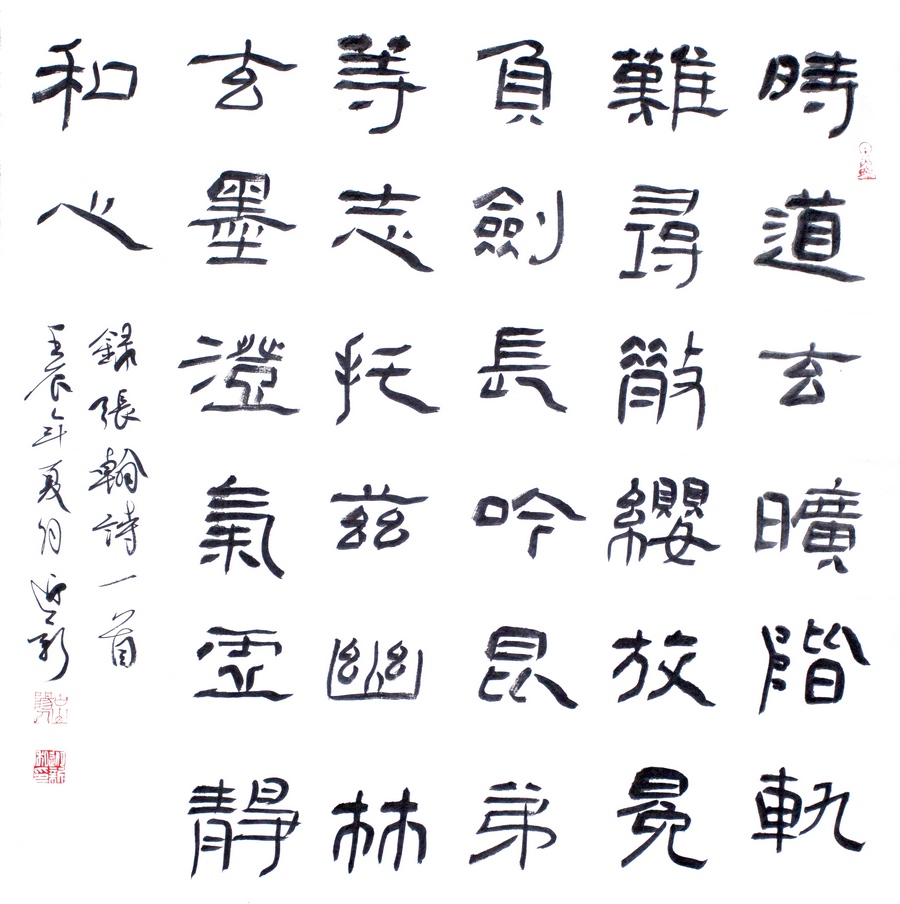 時道玄曠階軌
難尋散纓放冕
負劍長吟昆弟
等志托茲幽林
玄墨澄氣虛靜
和心
錄張翰詩一首
壬辰年夏月